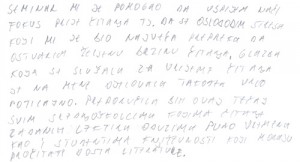 SEMINAR MI JE POMOGAO DA USPIJEM NAĆI
FOKUS PRIJE ČITANJA TJ. DA SE OSLOBODIM STRESA
KOJI MI JE BIO NAJVEĆA PREPREKA DA
OSTVARIM ŽELJENU BRZINU ČITANJA, GLAZBA
KOJA SE SLUŠALA ZA VRIJEME ČITANJA
JE NA MENE DJELOVALA TAKOĐER VRLO
POTICAJNO. PREPORUČILA BIH OVAJ TEČAJ
SVIM SREDNJOŠKOLCIMA KOJIMA ČITANJE
ZADANIH LEKTIRA ODUZIMA PUNO VREMENA
KAO I STUDENTIMA KNJIŽEVNOSTI KOJI MORAJU
PROČITATI DOSTA LITERATURE.